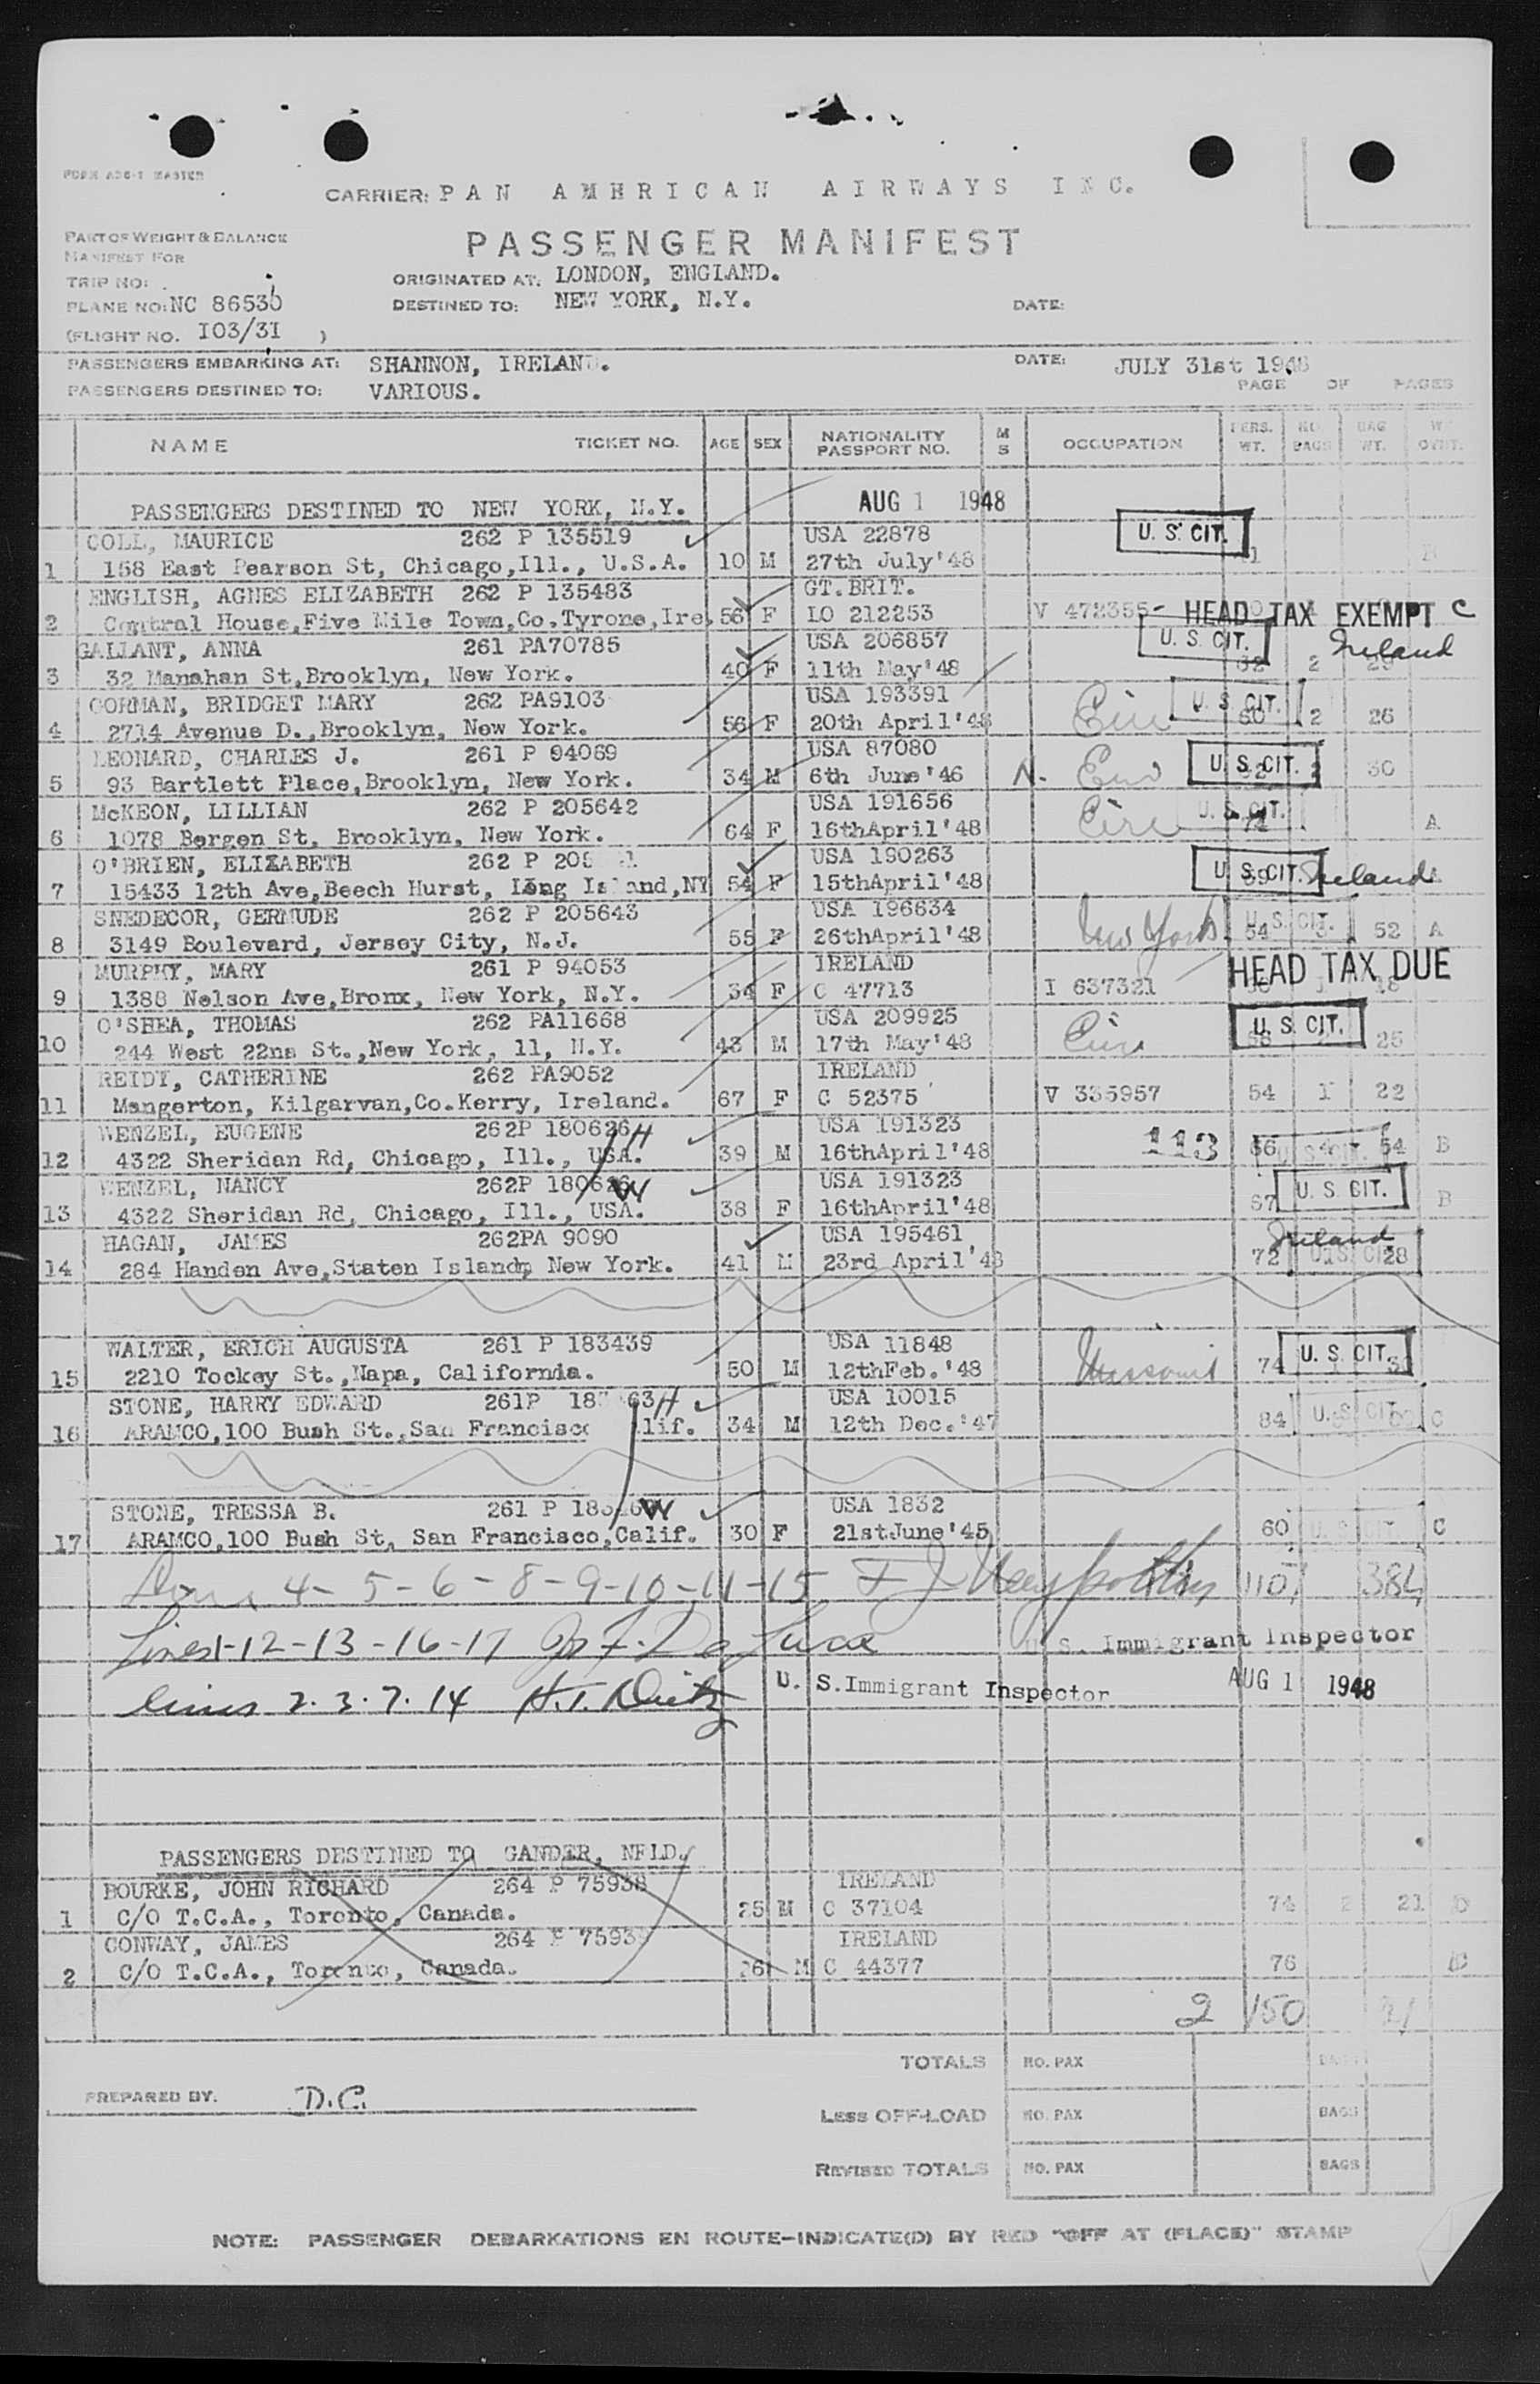 FORM ADC-1 MASTER
CARRIER: PAN AMERICAN AIRWAYS INC.
PART OF WEIGHT & BALANCE
MANIFEST FOR
PASSENGER MANIFEST
TRIP NO:
ORIGINATED AT: LONDON, ENGLAND.
PLANE NO: NC 86530
DESTINED TO: NEW YORK, N.Y.
DATE:
(FLIGHT NO. I03/3I )
PASSENGERS EMBARKING AT: SHANNON, IRELAND.
DATE: JULY 31st 1948
PASSENGERS DESTINED TO: VARIOUS.
PAGE OF PAGES
NAME TICKET NO. AGE SEX NATIONALITY PASSPORT NO. M S OCCUPATION PERS. WT. NO. BAGS BAG WT.
PASSENGERS DESTINED TO NEW YORK, N.Y. AUG 1 1948
COLL, MAURICE 262 P 135519 USA 22878 U. S. CIT.
1 158 East Pearson St, Chicago,Ill., U.S.A. 10 M 27th July'48 B
ENGLISH, AGNES ELIZABETH 262 P 135483 GT.BRIT.
2 Central House,Five Mile Town,Co.Tyrone,Ire. 56 F LO 212253 V 472355- HEAD TAX EXEMPT C
GALLANT, ANNA 261 PA70785 USA 206857 U. S. CIT. Ireland
3 32 Manahan St,Brooklyn, New York. 40 F 11th May'48 2 29
GORMAN, BRIDGET MARY 262 PA9103 USA 193391 U. S. CIT.
4 2714 Avenue D.,Brooklyn, New York. 56 F 20th April'48 Eire 60 2 26
LEONARD, CHARLES J. 261 P 94069 USA 87080 U. S. CIT.
5 93 Bartlett Place,Brooklyn, New York. 34 M 6th June'46 N. Eire 30
McKEON, LILLIAN 262 P 205642 USA 191656 U. S. CIT.
6 1078 Bergen St, Brooklyn, New York. 64 F 16thApril'48 Eire A
O'BRIEN, ELIZABETH 262 P USA 190263 U. S. CIT. Ireland
7 15433 12th Ave,Beech Hurst, Long Island,NY 54 F 15thApril'48
SNEDECOR, GERMUDE 262 P 205643 USA 196634 U. S. CIT.
8 3149 Boulevard, Jersey City, N.J. 55 F 26thApril'48 New York 54 52 A
MURPHY, MARY 261 P 94053 IRELAND HEAD TAX DUE
9 1388 Nelson Ave,Bronx, New York, N.Y. 34 F C 47713 I 637321
O'SHEA, THOMAS 262 PA11668 USA 209925 U. S. CIT.
10 244 West 22nn St.,New York, 11, N.Y. 43 M 17th May'48 Eire 25
REIDY, CATHERINE 262 PA9052 IRELAND
11 Mangerton, Kilgarvan,Co.Kerry, Ireland. 67 F C 52375 V 335957 54 1 22
WENZEL, EUGENE 262P 180626 H USA 191323
12 4322 Sheridan Rd, Chicago, Ill., USA. 39 M 16thApril'48 113 66 4 54 B
WENZEL, NANCY 262P 180626 W USA 191323 U. S. CIT.
13 4322 Sheridan Rd, Chicago, Ill., USA. 38 F 16thApril'48 57 B
HAGAN, JAMES 262PA 9090 USA 195461 Ireland
14 284 Handen Ave,Staten Island, New York. 41 M 23rd April'48 72 U. S. CIT. 28
WALTER, ERICH AUGUSTA 261 P 183439 USA 11848 U. S. CIT.
15 2210 Tockey St.,Napa, California. 50 M 12thFeb.'48 Missouri 74
STONE, HARRY EDWARD 261P H USA 10015
16 ARAMCO,100 Bush St.,San Francisco Calif. 34 M 12th Dec.'47 84 U. S. CIT. C
STONE, TRESSA B. 261 P W USA 1832
17 ARAMCO,100 Bush St, San Francisco,Calif. 30 F 21stJune'45 60 U. S. CIT. C
4-5-6-8-9-10-11-15 384
Lines 1-12-13-16-17 Jos F. De Luca U. S. Immigrant Inspector
lines 2.3.7.14 H.T. Dietz U. S. Immigrant Inspector AUG 1 1948
PASSENGERS DESTINED TO GANDER, NFLD.
BOURKE, JOHN RICHARD 264 P 75938 IRELAND
1 C/O T.C.A., Toronto, Canada. 25 M C 37104 74 2 21 D
CONWAY, JAMES 264 P 75939 IRELAND
2 C/O T.C.A., Toronto, Canada. 26 M C 44377 76
2 150 21
TOTALS NO. PAX BAGS
PREPARED BY. D.C.
LESS OFF-LOAD NO. PAX BAGS
REVISED TOTALS NO. PAX BAGS
NOTE: PASSENGER DEBARKATIONS EN ROUTE-INDICATE(D) BY RED "OFF AT (PLACE)" STAMP